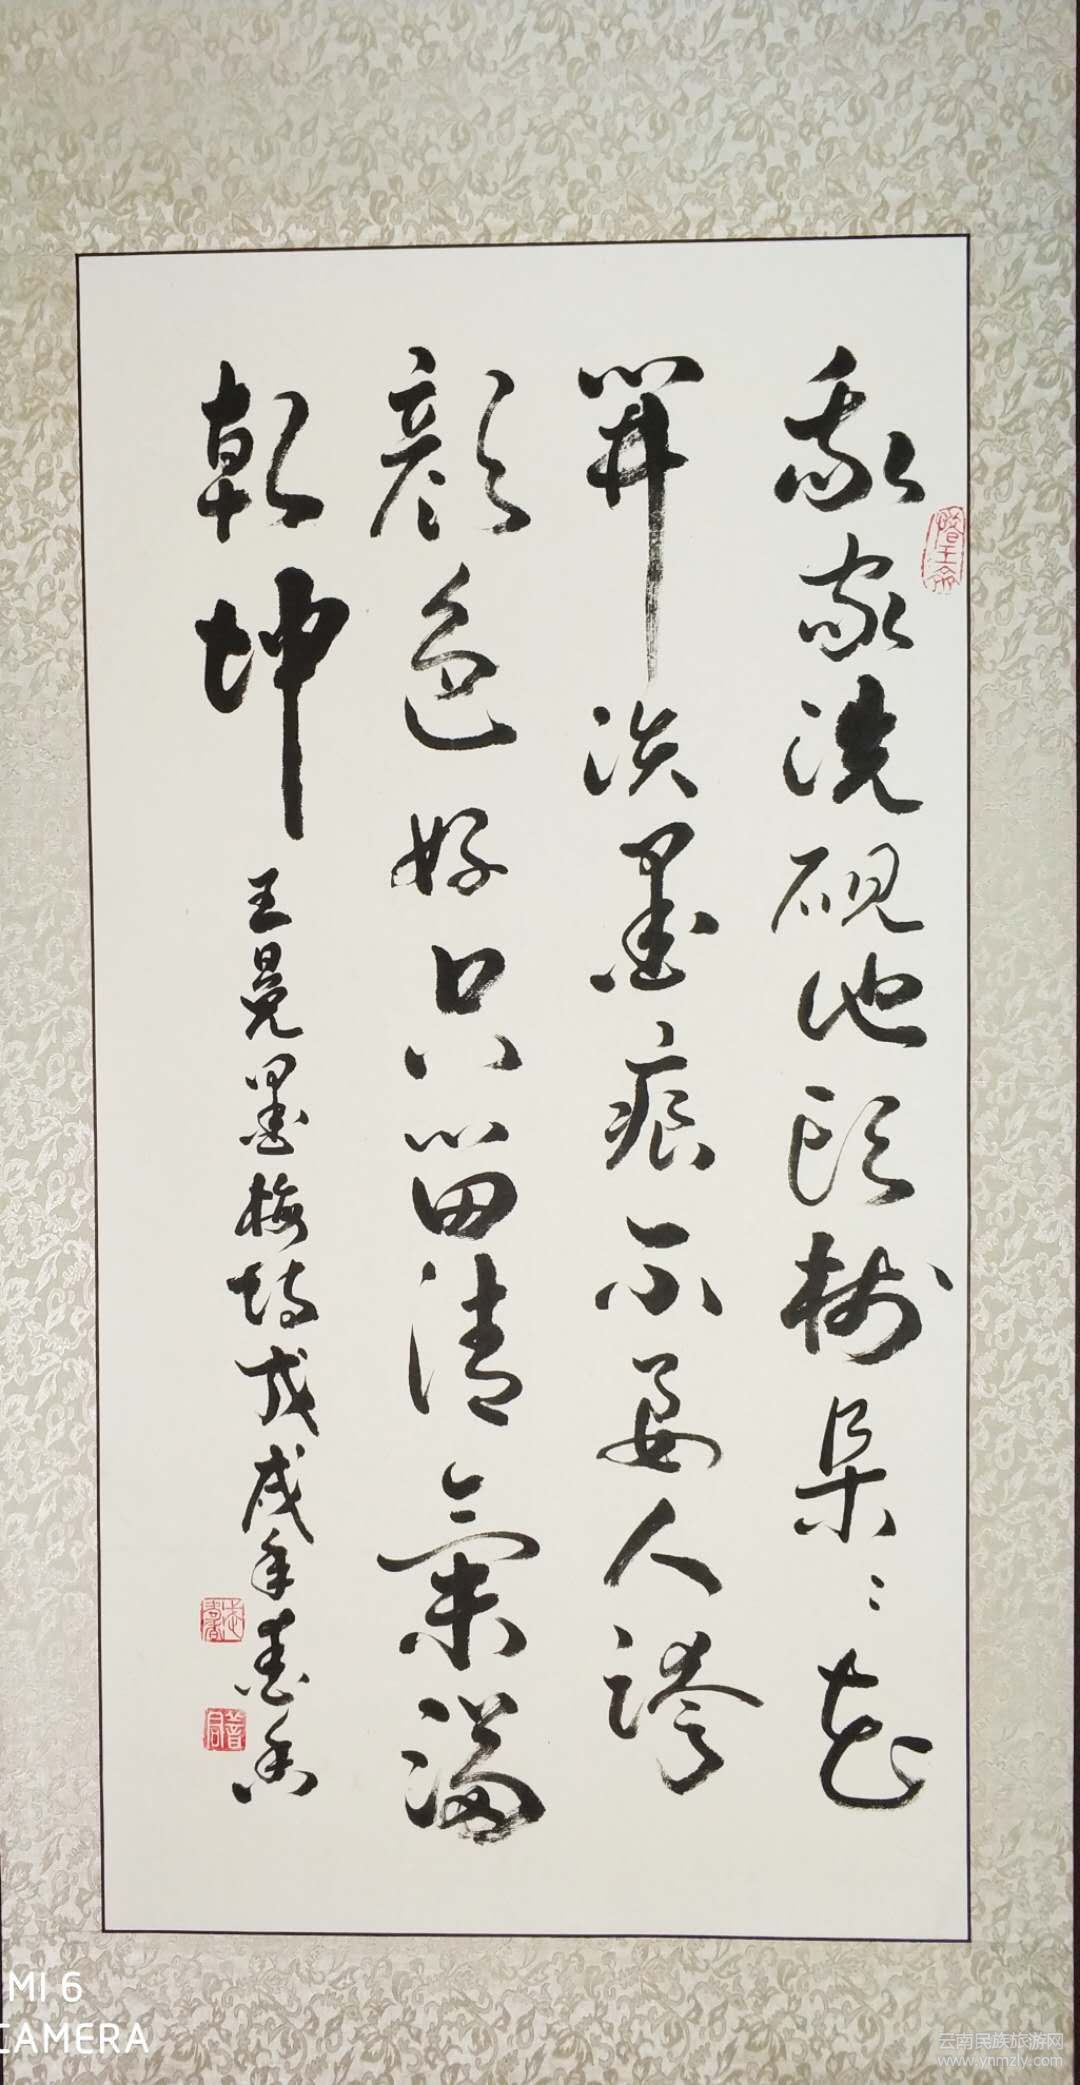 我家洗砚池头树朵〻花
開淡墨痕不要人誇
颜色好只留清氣满
乾坤
王冕墨梅诗戊戌年志香
MI 6
CAMERA
云南民族旅游网
www.ynmzly.com